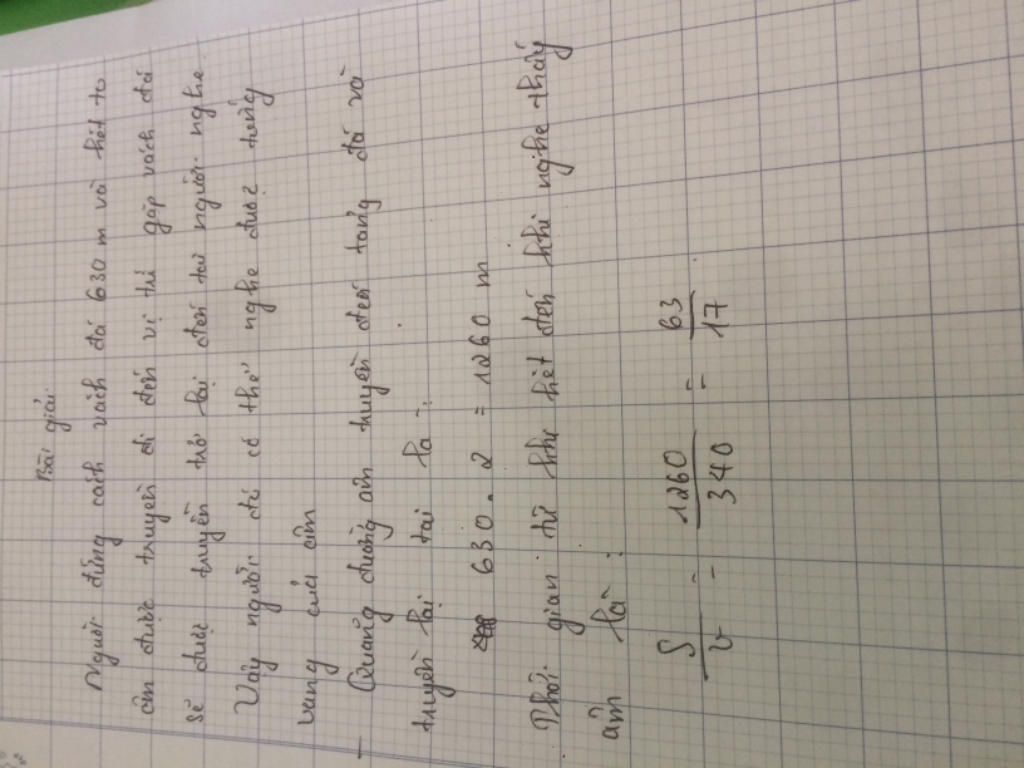 Bài giải
Người đứng cách vách đá 630 m và hét to
âm được truyền đi đến vị trí gặp vách đá
sẽ được truyền trở lại đến tai người nghe
Vậy người đó có thể nghe được tiếng
vang của âm
- Quãng đường âm truyền đến tảng đá và
truyền lại tai là :
630 . 2 = 1260 m
Thời gian từ khi hét đến khi nghe thấy
âm là :
S/v = 1260/340 = 63/17